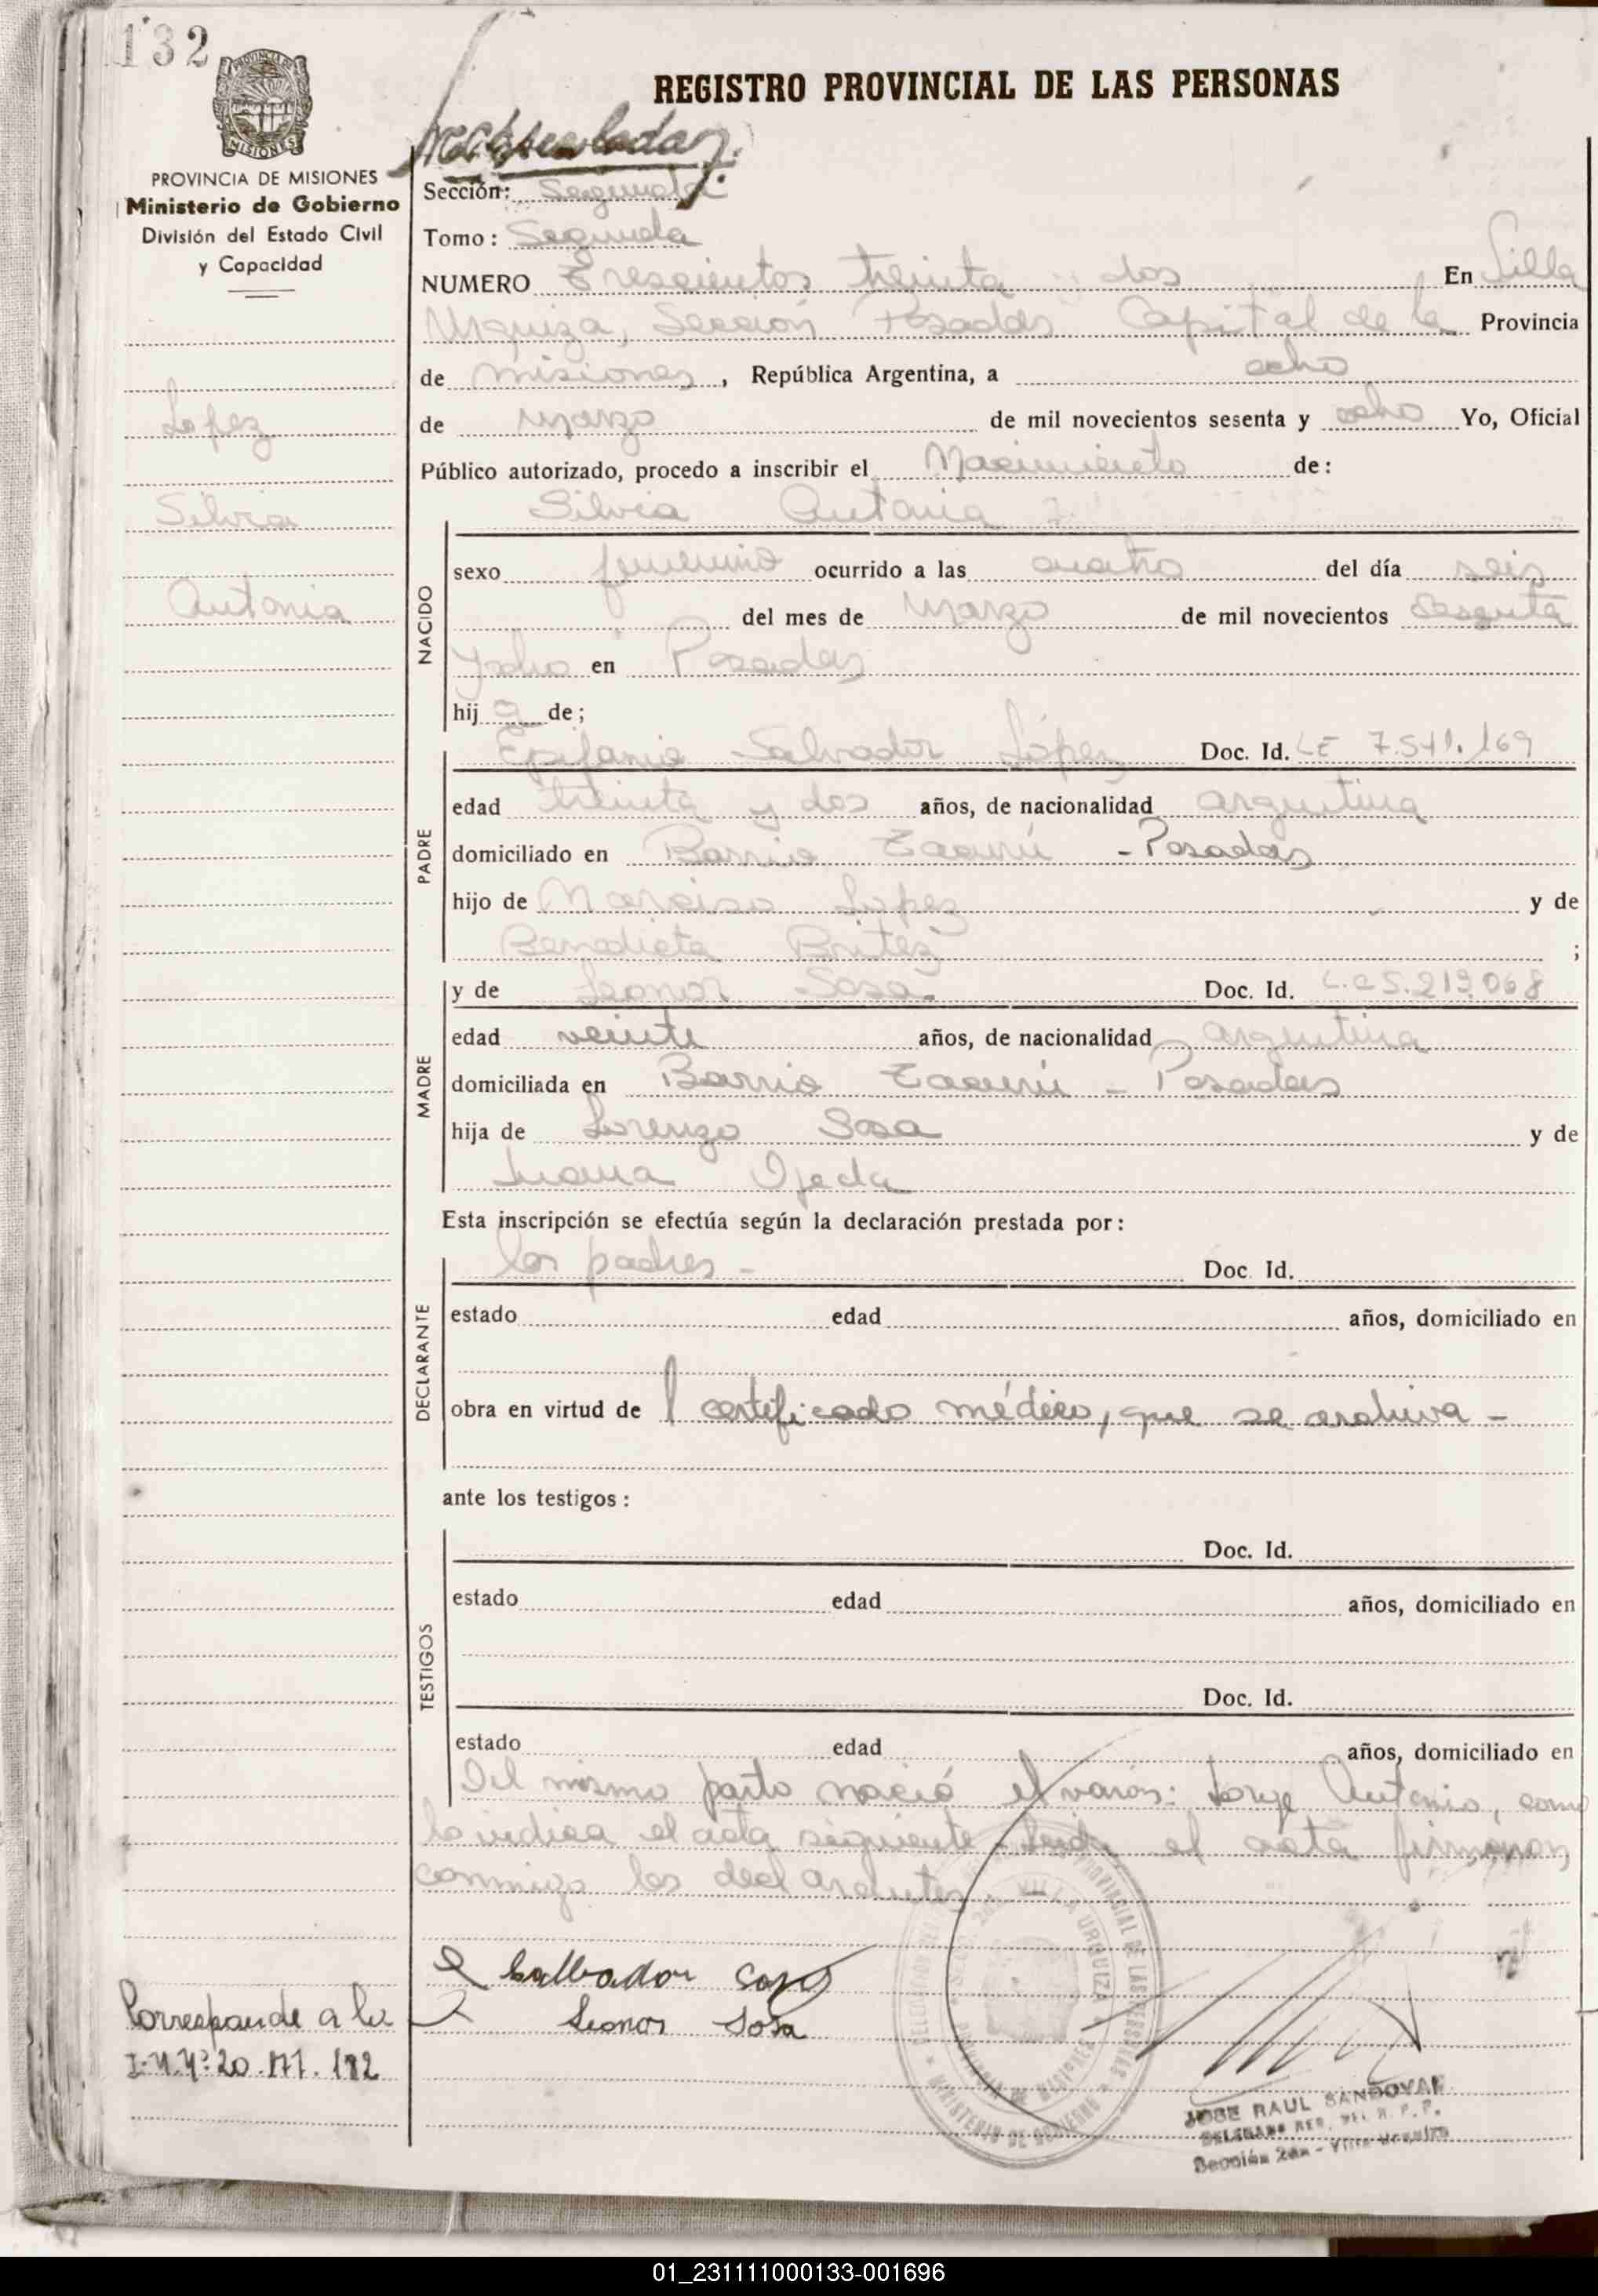 132
REGISTRO PROVINCIAL DE LAS PERSONAS
PROVINCIA DE MISIONES
Ministerio de Gobierno
División del Estado Civil
y Capacidad
Sección: Segunda
Tomo: Segunda
NUMERO Trescientos treinta y dos En Villa
Urquiza, Sección Posadas Capital de la Provincia
de Misiones, República Argentina, a ocho
de Marzo de mil novecientos sesenta y ocho Yo, Oficial
Público autorizado, procedo a inscribir el Nacimiento de:
Lopez
Silvia
Antonia
Silvia Antonia
NACIDO
sexo femenino ocurrido a las cuatro del día seis
del mes de Marzo de mil novecientos sesenta
y ocho en Posadas
hija de;
PADRE
Epifanio Salvador López Doc. Id. LE 7.541.169
edad treinta y dos años, de nacionalidad argentina
domiciliado en Barrio Tacurú - Posadas
hijo de Narciso Lopez y de
Benedicta Britez ;
MADRE
y de Leonor Sosa. Doc. Id. L.C 5.213.068
edad veinte años, de nacionalidad argentina
domiciliada en Barrio Tacurú - Posadas
hija de Lorenzo Sosa y de
Juana Ojeda
Esta inscripción se efectúa según la declaración prestada por:
DECLARANTE
los padres - Doc. Id.
estado edad años, domiciliado en
obra en virtud de certificado médico, que se archiva -
ante los testigos:
TESTIGOS
Doc. Id.
estado edad años, domiciliado en
Doc. Id.
estado edad años, domiciliado en
Del mismo parto nació el varón: Jorge Antonio, como
lo indica el acta siguiente - el acta firmaron
conmigo los declarantes.
Leonor Sosa
Corresponde a la
20.177.182
VILLA URQUIZA
PROVINCIAL DE LAS PERSONAS
MINISTERIO DE GOBIERNO
JOSE RAUL SANDOVAL
Sección 2da - Villa Urquiza
01_231111000133-001696